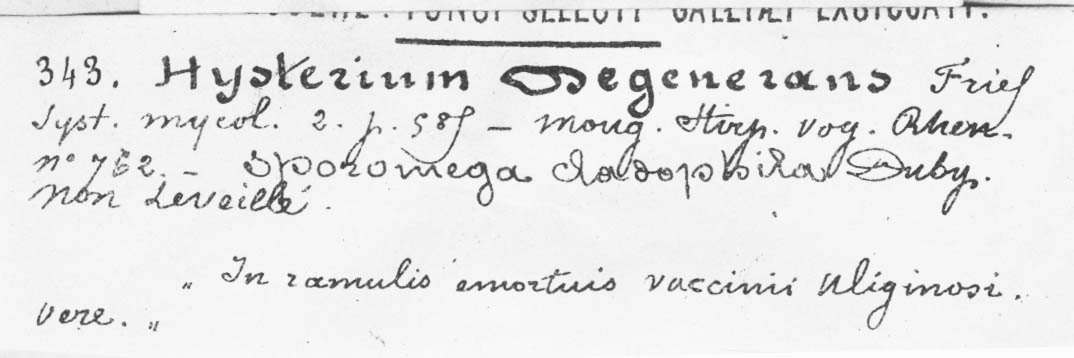 FUNGI SELECTI GALLIAEI EXSICCATI.
343. Hysterium Degenerans Fries
Syst. mycol. 2. p. 585 – Moug. Stirp. Vog. Rhen.
n° 752. – Sporomega cladophila Duby.
Non Leveillé.
„ In ramulis emortuis vaccinii uliginosi.
vere. „